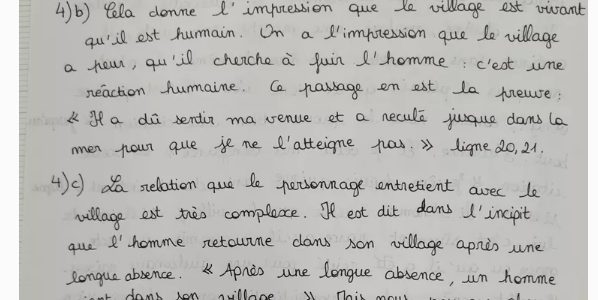 4)b) Cela donne l'impression que le village est vivant
qu'il est humain. On a l'impression que le village
a peur, qu'il cherche à fuir l'homme : c'est une
réaction humaine. Ce passage en est la preuve :
« Il a dû sentir ma venue et a reculé jusque dans la
mer pour que je ne l'atteigne pas. » ligne 20, 21.
4)c) La relation que le personnage entretient avec le
village est très complexe. Il est dit dans l'incipit
que l'homme retourne dans son village après une
longue absence. « Après une longue absence, un homme
dans son village » Mais nous